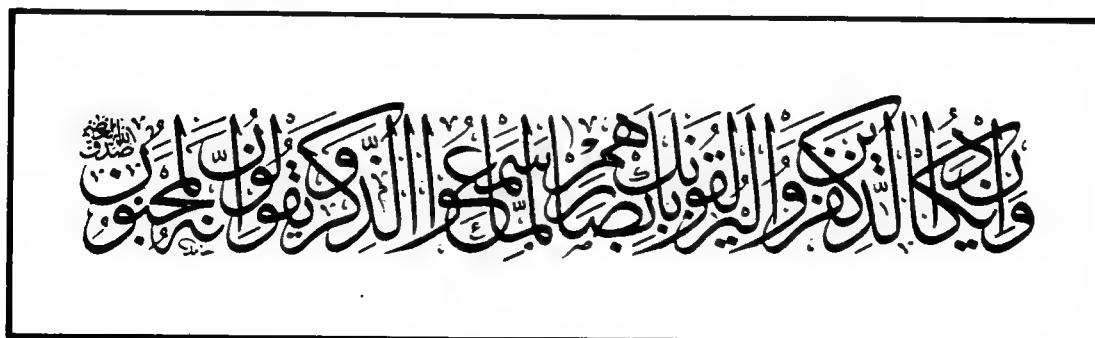 وان يكاد الذين كفروا ليزلقونك بابصارهم لما سمعوا الذكر ويقولون انه لمجنون
صدق الله العظيم